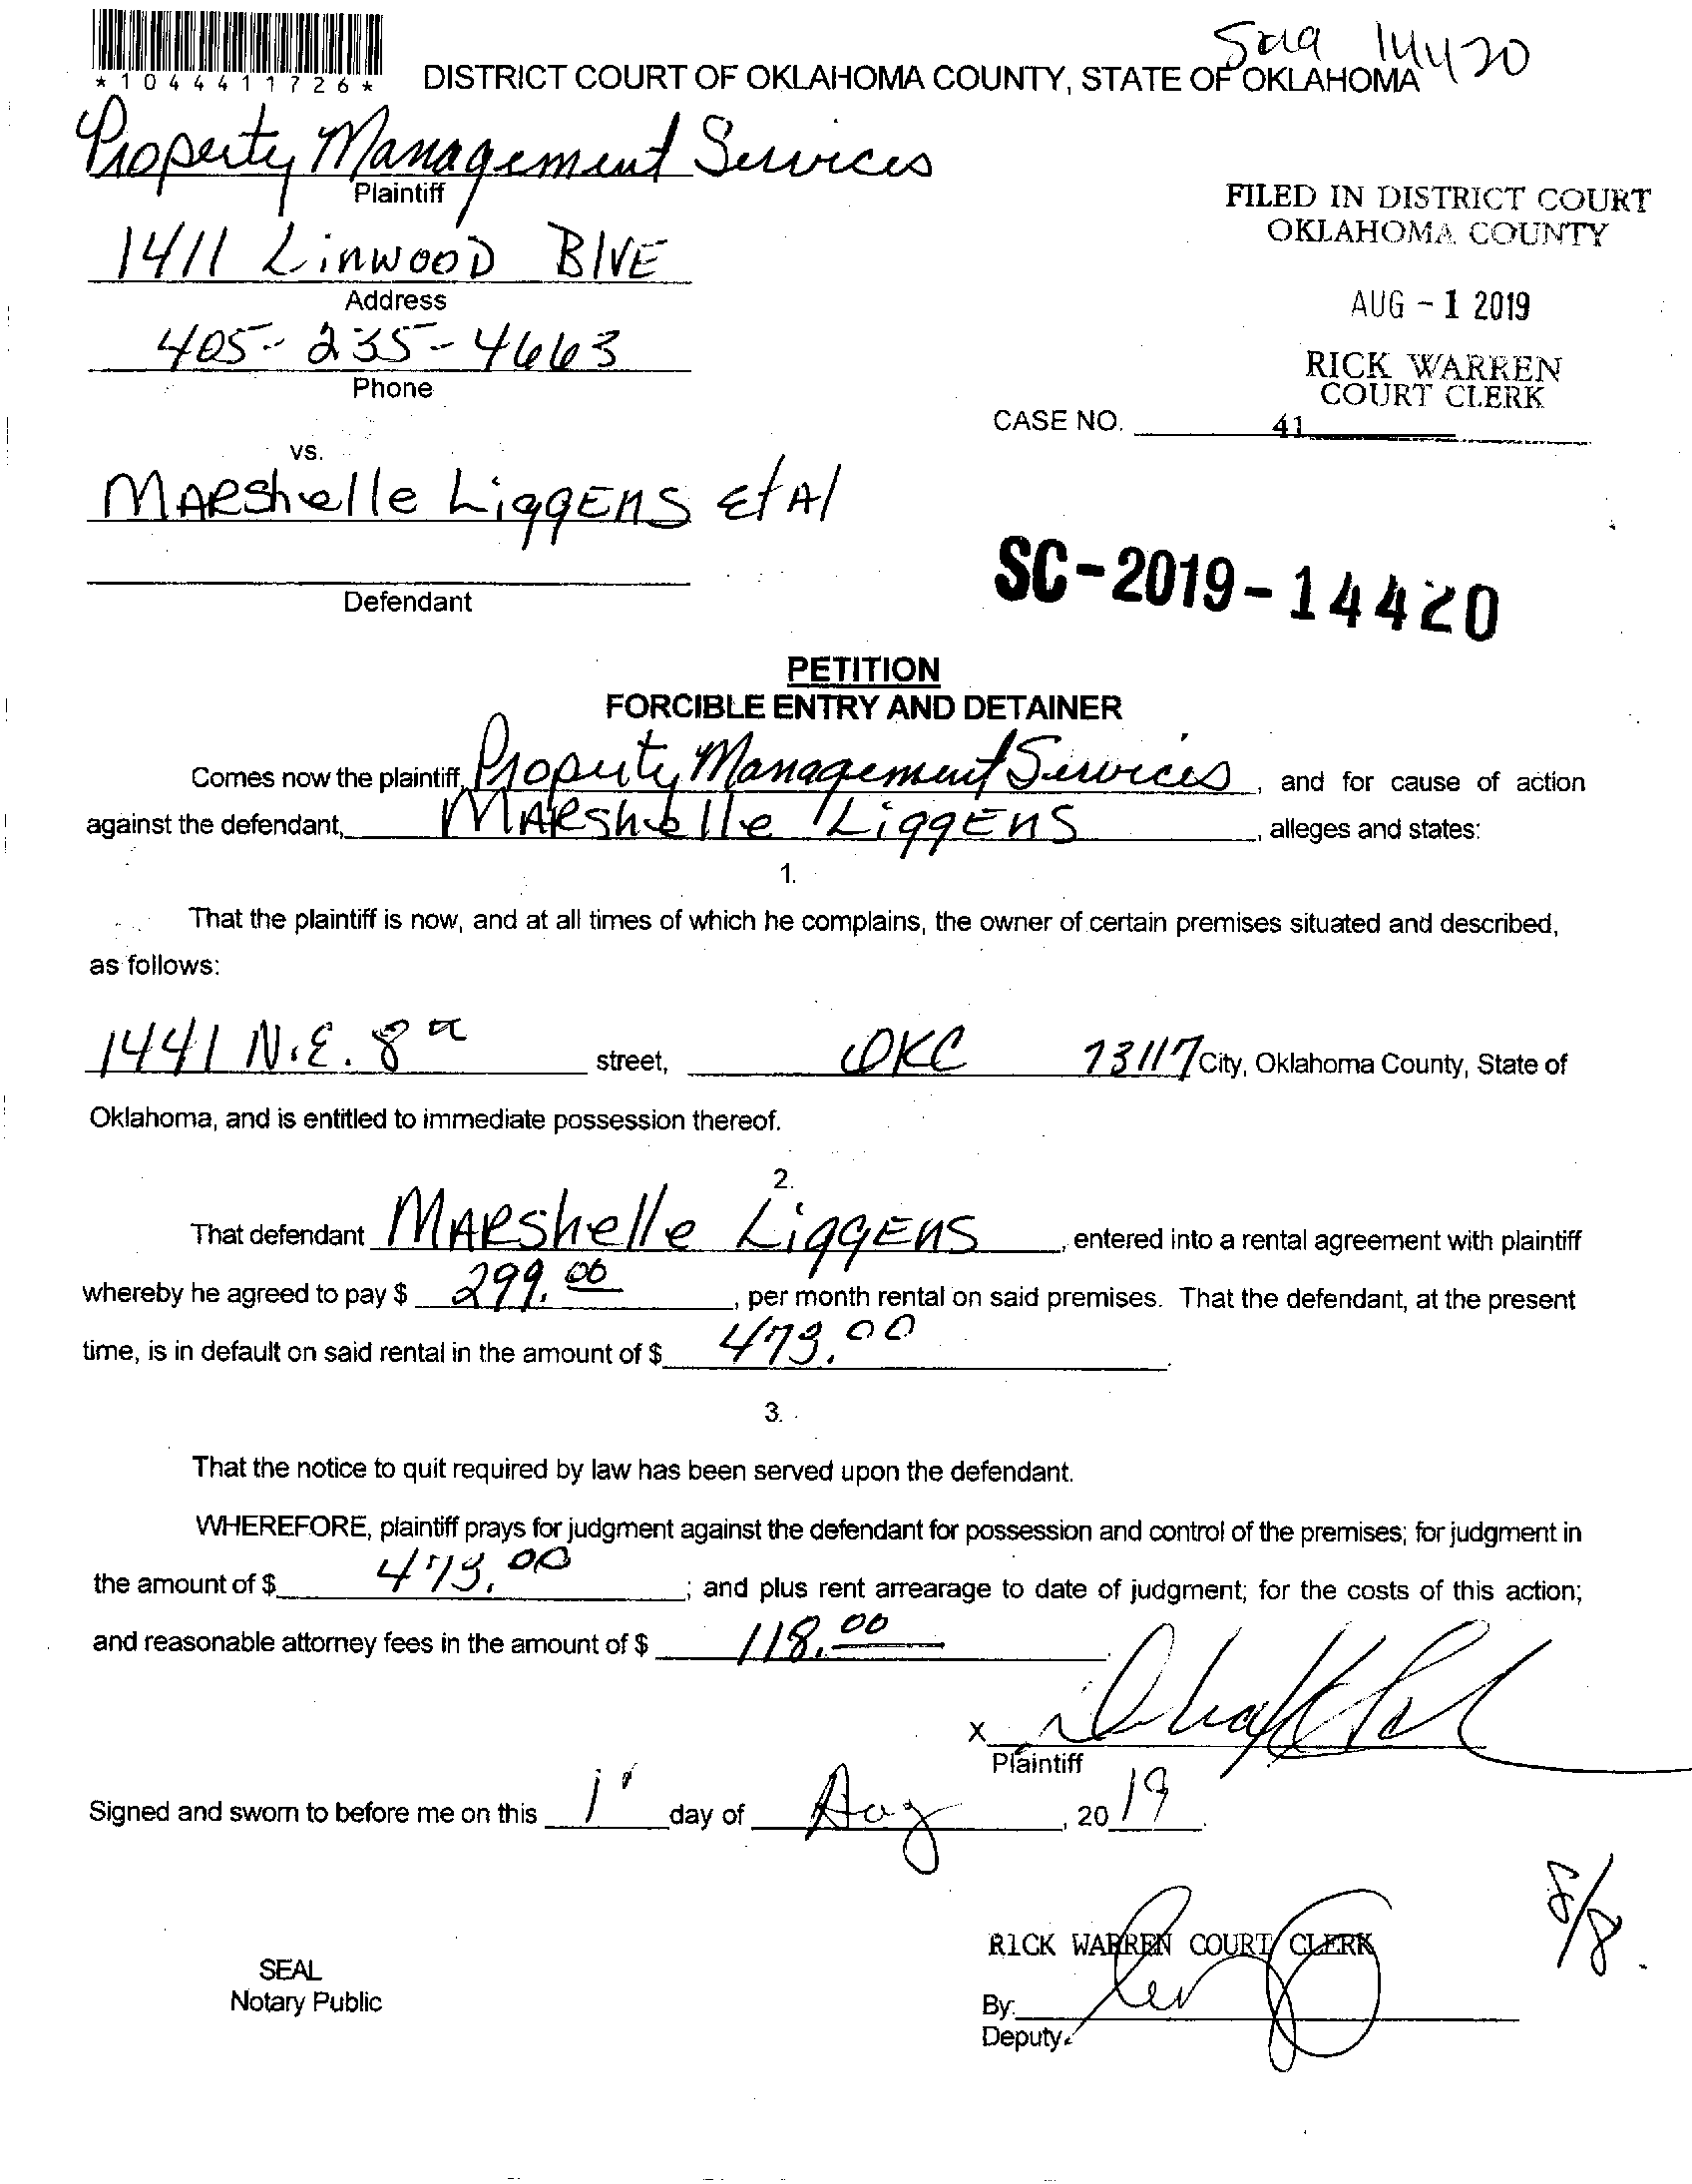 *1044411726*
DISTRICT COURT OF OKLAHOMA COUNTY, STATE OF OKLAHOMA
14420
Property Management Services
Plaintiff
FILED IN DISTRICT COURT
OKLAHOMA COUNTY
1411 LinwooD BlVE
Address
AUG - 1 2019
405-235-4663
Phone
RICK WARREN
COURT CLERK
CASE NO.
41
vs.
MARshelle LiggENS Et Al
SC-2019-14420
Defendant
PETITION
FORCIBLE ENTRY AND DETAINER
Comes now the plaintiff, Property Management Services, and for cause of action
against the defendant, MARshelle LiggENS, alleges and states:
1.
That the plaintiff is now, and at all times of which he complains, the owner of certain premises situated and described,
as follows:
1441 N.E. 8th street, OKC 73117 City, Oklahoma County, State of
Oklahoma, and is entitled to immediate possession thereof.
2.
That defendant MARshelle LiggENS, entered into a rental agreement with plaintiff
whereby he agreed to pay $ 299.00, per month rental on said premises. That the defendant, at the present
time, is in default on said rental in the amount of $ 473.00.
3.
That the notice to quit required by law has been served upon the defendant.
WHEREFORE, plaintiff prays for judgment against the defendant for possession and control of the premises; for judgment in
the amount of $ 473.00; and plus rent arrearage to date of judgment; for the costs of this action;
and reasonable attorney fees in the amount of $ 118.00.
X
Plaintiff
Signed and sworn to before me on this 1 day of Aug, 2019.
8/8.
RICK WARREN COURT CLERK
SEAL
Notary Public
By:
Deputy